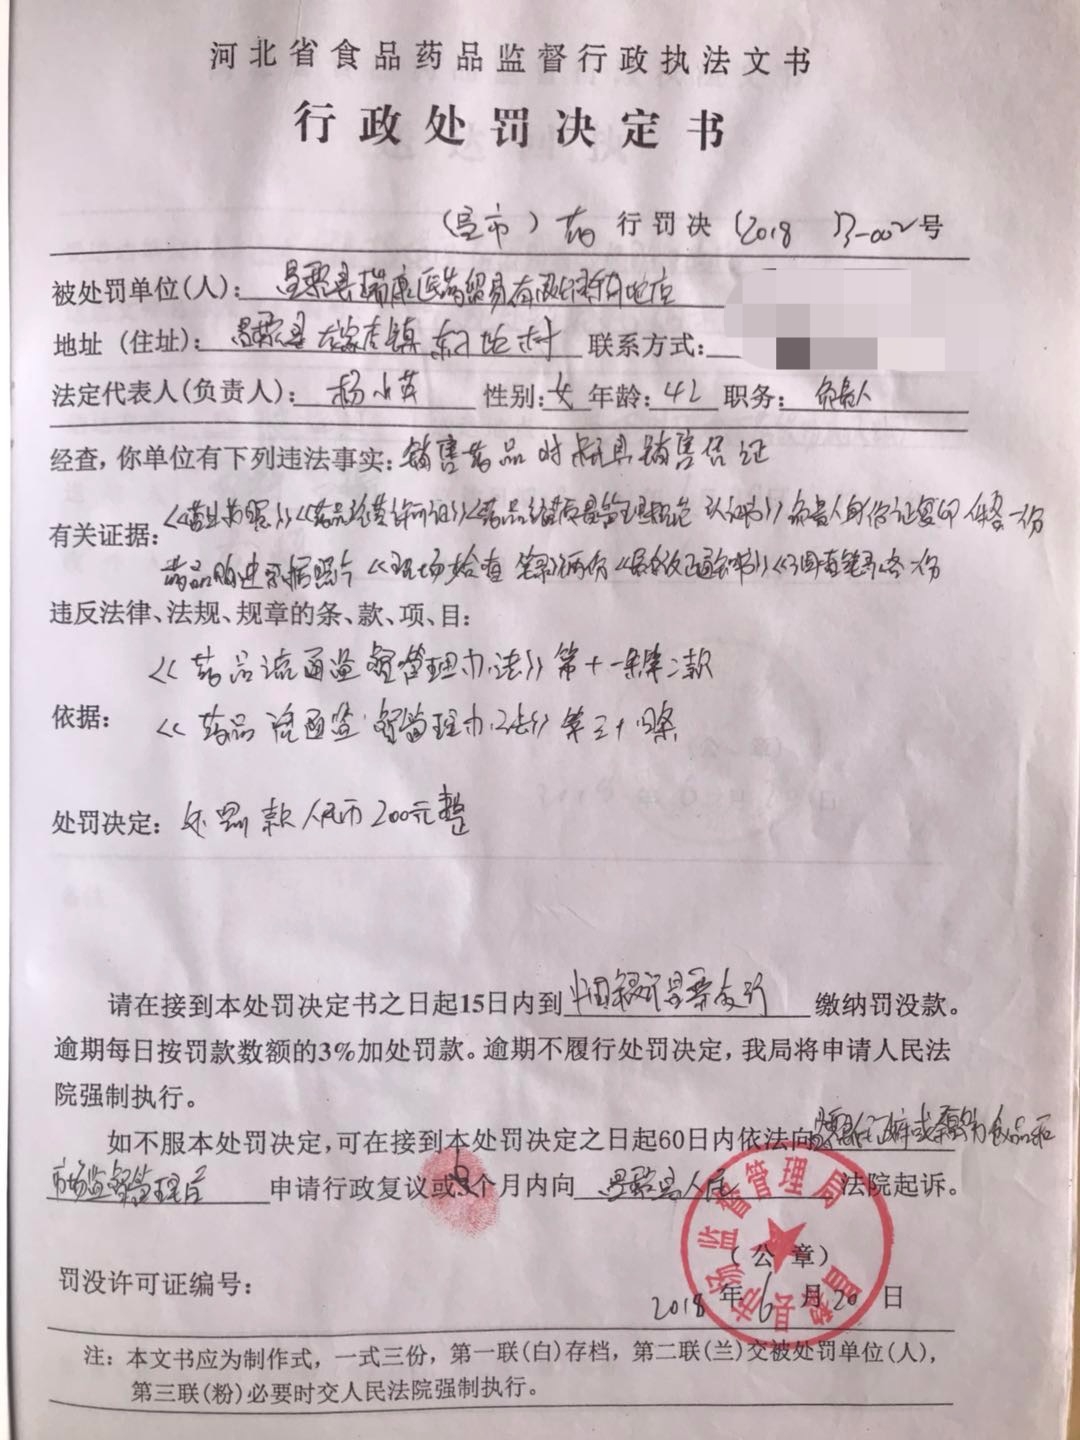 河北省食品药品监督行政执法文书
行政处罚决定书
(昌市)药行罚决〔2018 -002号
被处罚单位(人): 昌黎县瑞康医药贸易有限公司
地址(住址): 昌黎县 镇 村 联系方式:
法定代表人(负责人): 杨小 性别:女 年龄:42 职务: 负责人
经查,你单位有下列违法事实: 销售药品时未开具销售凭证
《营业执照》《药品经营许可证》《药品经营质量管理规范认证书》负责人身份证复印件各一份
有关证据:
药品购进票据照片《现场检查笔录》两份《责令改正通知书》《调查笔录》各一份
违反法律、法规、规章的条、款、项、目:
《药品流通监督管理办法》第十一条第二款
依据: 《药品流通监督管理办法》第三十四条
处罚决定: 处罚款人民币200元整
请在接到本处罚决定书之日起15日内到中国银行昌黎支行缴纳罚没款。
逾期每日按罚款数额的3%加处罚款。逾期不履行处罚决定,我局将申请人民法
院强制执行。
如不服本处罚决定,可在接到本处罚决定之日起60日内依法向昌黎县人民政府或秦皇岛市食品和
市场监督管理局申请行政复议或 个月内向昌黎县人民法院起诉。
昌黎县市场监督管理局
(公章)
罚没许可证编号:
2018年6月20日
注:本文书应为制作式,一式三份,第一联(白)存档,第二联(兰)交被处罚单位(人),
第三联(粉)必要时交人民法院强制执行。